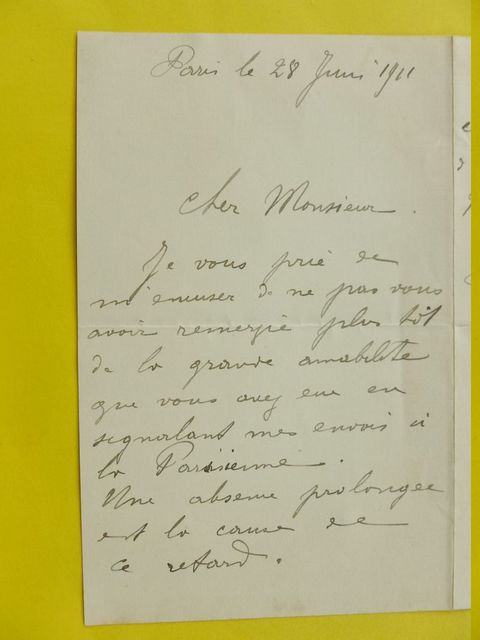 Paris le 28 Juin 1911
Cher Monsieur.
Je vous prie de
m'excuser de ne pas vous
avoir remerçié plus tôt
de la grande amabilité
que vous avez eue en
signalant mes envois à
la Parisienne.
Une absence prolongée
est la cause de
ce retard.